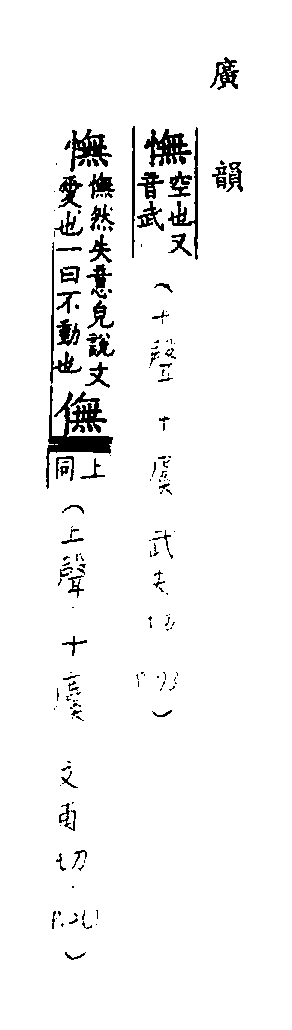 廣韻
憮
空也又
音武
（平聲 十虞 武夫切
憮
憮然失意皃說文
愛也一曰不動也
㒇
上
同
（上聲·十麌 文甫切·